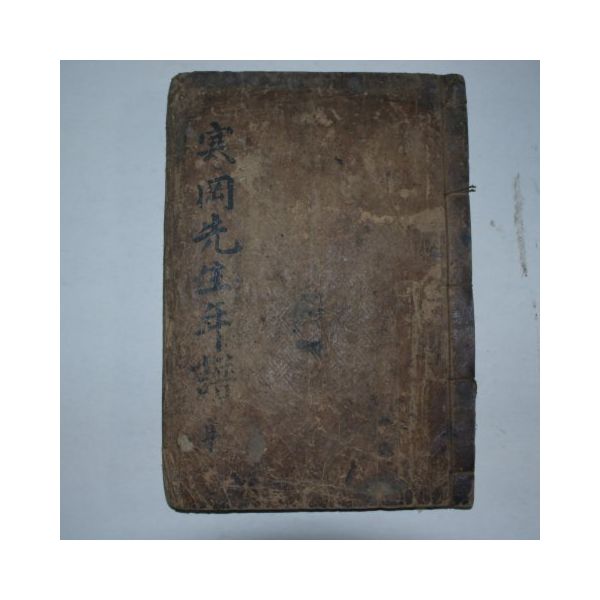 寒岡先生年譜